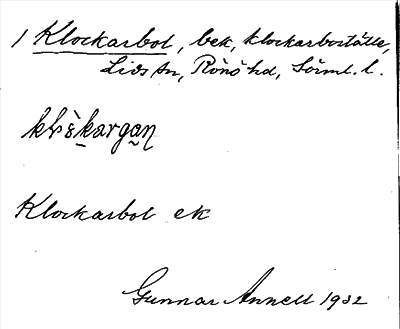 1 Klockarbol, bek, klockarboställe,
Lids sn, Rönö hd, Söml. l.
Klockarbol ek
Gunnar Annell 1932